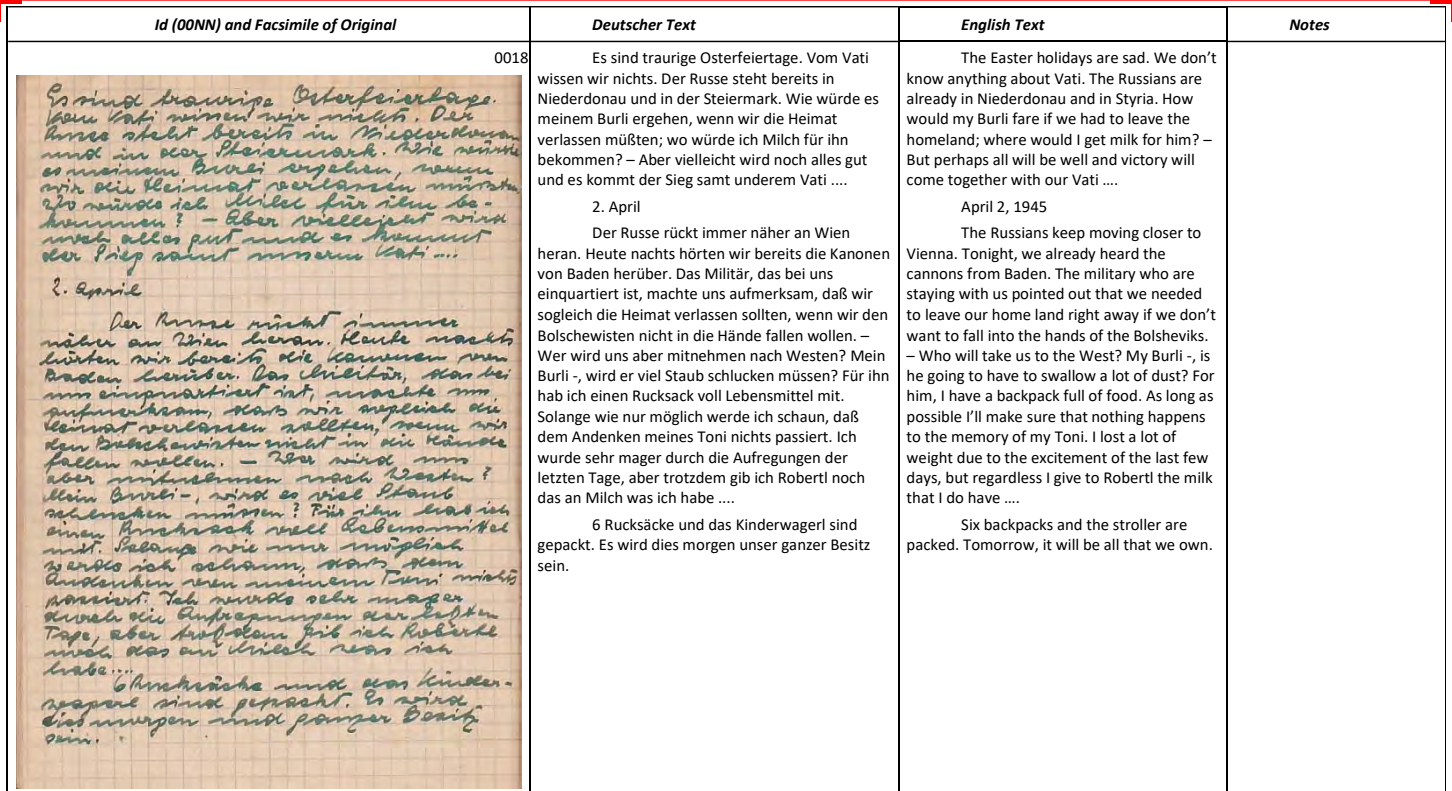 Id (00NN) and Facsimile of Original
Deutscher Text
English Text
Notes
0018
Es sind traurige Osterfeiertage.
Vom Vati wissen wir nichts. Der
Russe steht bereits in Niederdonau
und in der Steiermark. Wie würde
es meinem Burli ergehen, wenn
wir die Heimat verlassen müssten;
wo würde ich Milch für ihn be-
kommen? – Aber vielleicht wird
noch alles gut und es kommt
der Sieg samt unserem Vati ....
2. April
Der Russe rückt immer
näher an Wien heran. Heute nachts
hörten wir bereits die Kanonen von
Baden herüber. Das Militär, das bei
uns einquartiert ist, machte uns
aufmerksam, dass wir sogleich die
Heimat verlassen sollten, wenn wir
den Bolschewisten nicht in die Hände
fallen wollen. – Wer wird uns
aber mitnehmen nach Westen?
Mein Burli -, wird er viel Staub
schlucken müssen? Für ihn hab ich
einen Rucksack voll Lebensmittel
mit. Solange wie nur möglich
werde ich schaun, dass dem
Andenken von meinem Toni nichts
passiert. Ich wurde sehr mager
durch die Aufregungen der letzten
Tage, aber trotzdem gib ich Robertl
noch das an Milch was ich
habe ....
6 Rucksäcke und das Kinder-
wagerl sind gepackt. Es wird
dies morgen unser ganzer Besitz
sein.
Es sind traurige Osterfeiertage. Vom Vati
wissen wir nichts. Der Russe steht bereits in
Niederdonau und in der Steiermark. Wie würde es
meinem Burli ergehen, wenn wir die Heimat
verlassen müßten; wo würde ich Milch für ihn
bekommen? – Aber vielleicht wird noch alles gut
und es kommt der Sieg samt underem Vati ....
2. April
Der Russe rückt immer näher an Wien
heran. Heute nachts hörten wir bereits die Kanonen
von Baden herüber. Das Militär, das bei uns
einquartiert ist, machte uns aufmerksam, daß wir
sogleich die Heimat verlassen sollten, wenn wir den
Bolschewisten nicht in die Hände fallen wollen. –
Wer wird uns aber mitnehmen nach Westen? Mein
Burli -, wird er viel Staub schlucken müssen? Für ihn
hab ich einen Rucksack voll Lebensmittel mit.
Solange wie nur möglich werde ich schaun, daß
dem Andenken meines Toni nichts passiert. Ich
wurde sehr mager durch die Aufregungen der
letzten Tage, aber trotzdem gib ich Robertl noch
das an Milch was ich habe ....
6 Rucksäcke und das Kinderwagerl sind
gepackt. Es wird dies morgen unser ganzer Besitz
sein.
The Easter holidays are sad. We don’t
know anything about Vati. The Russians are
already in Niederdonau and in Styria. How
would my Burli fare if we had to leave the
homeland; where would I get milk for him? –
But perhaps all will be well and victory will
come together with our Vati ….
April 2, 1945
The Russians keep moving closer to
Vienna. Tonight, we already heard the
cannons from Baden. The military who are
staying with us pointed out that we needed
to leave our home land right away if we don’t
want to fall into the hands of the Bolsheviks.
– Who will take us to the West? My Burli -, is
he going to have to swallow a lot of dust? For
him, I have a backpack full of food. As long as
possible I’ll make sure that nothing happens
to the memory of my Toni. I lost a lot of
weight due to the excitement of the last few
days, but regardless I give to Robertl the milk
that I do have ….
Six backpacks and the stroller are
packed. Tomorrow, it will be all that we own.